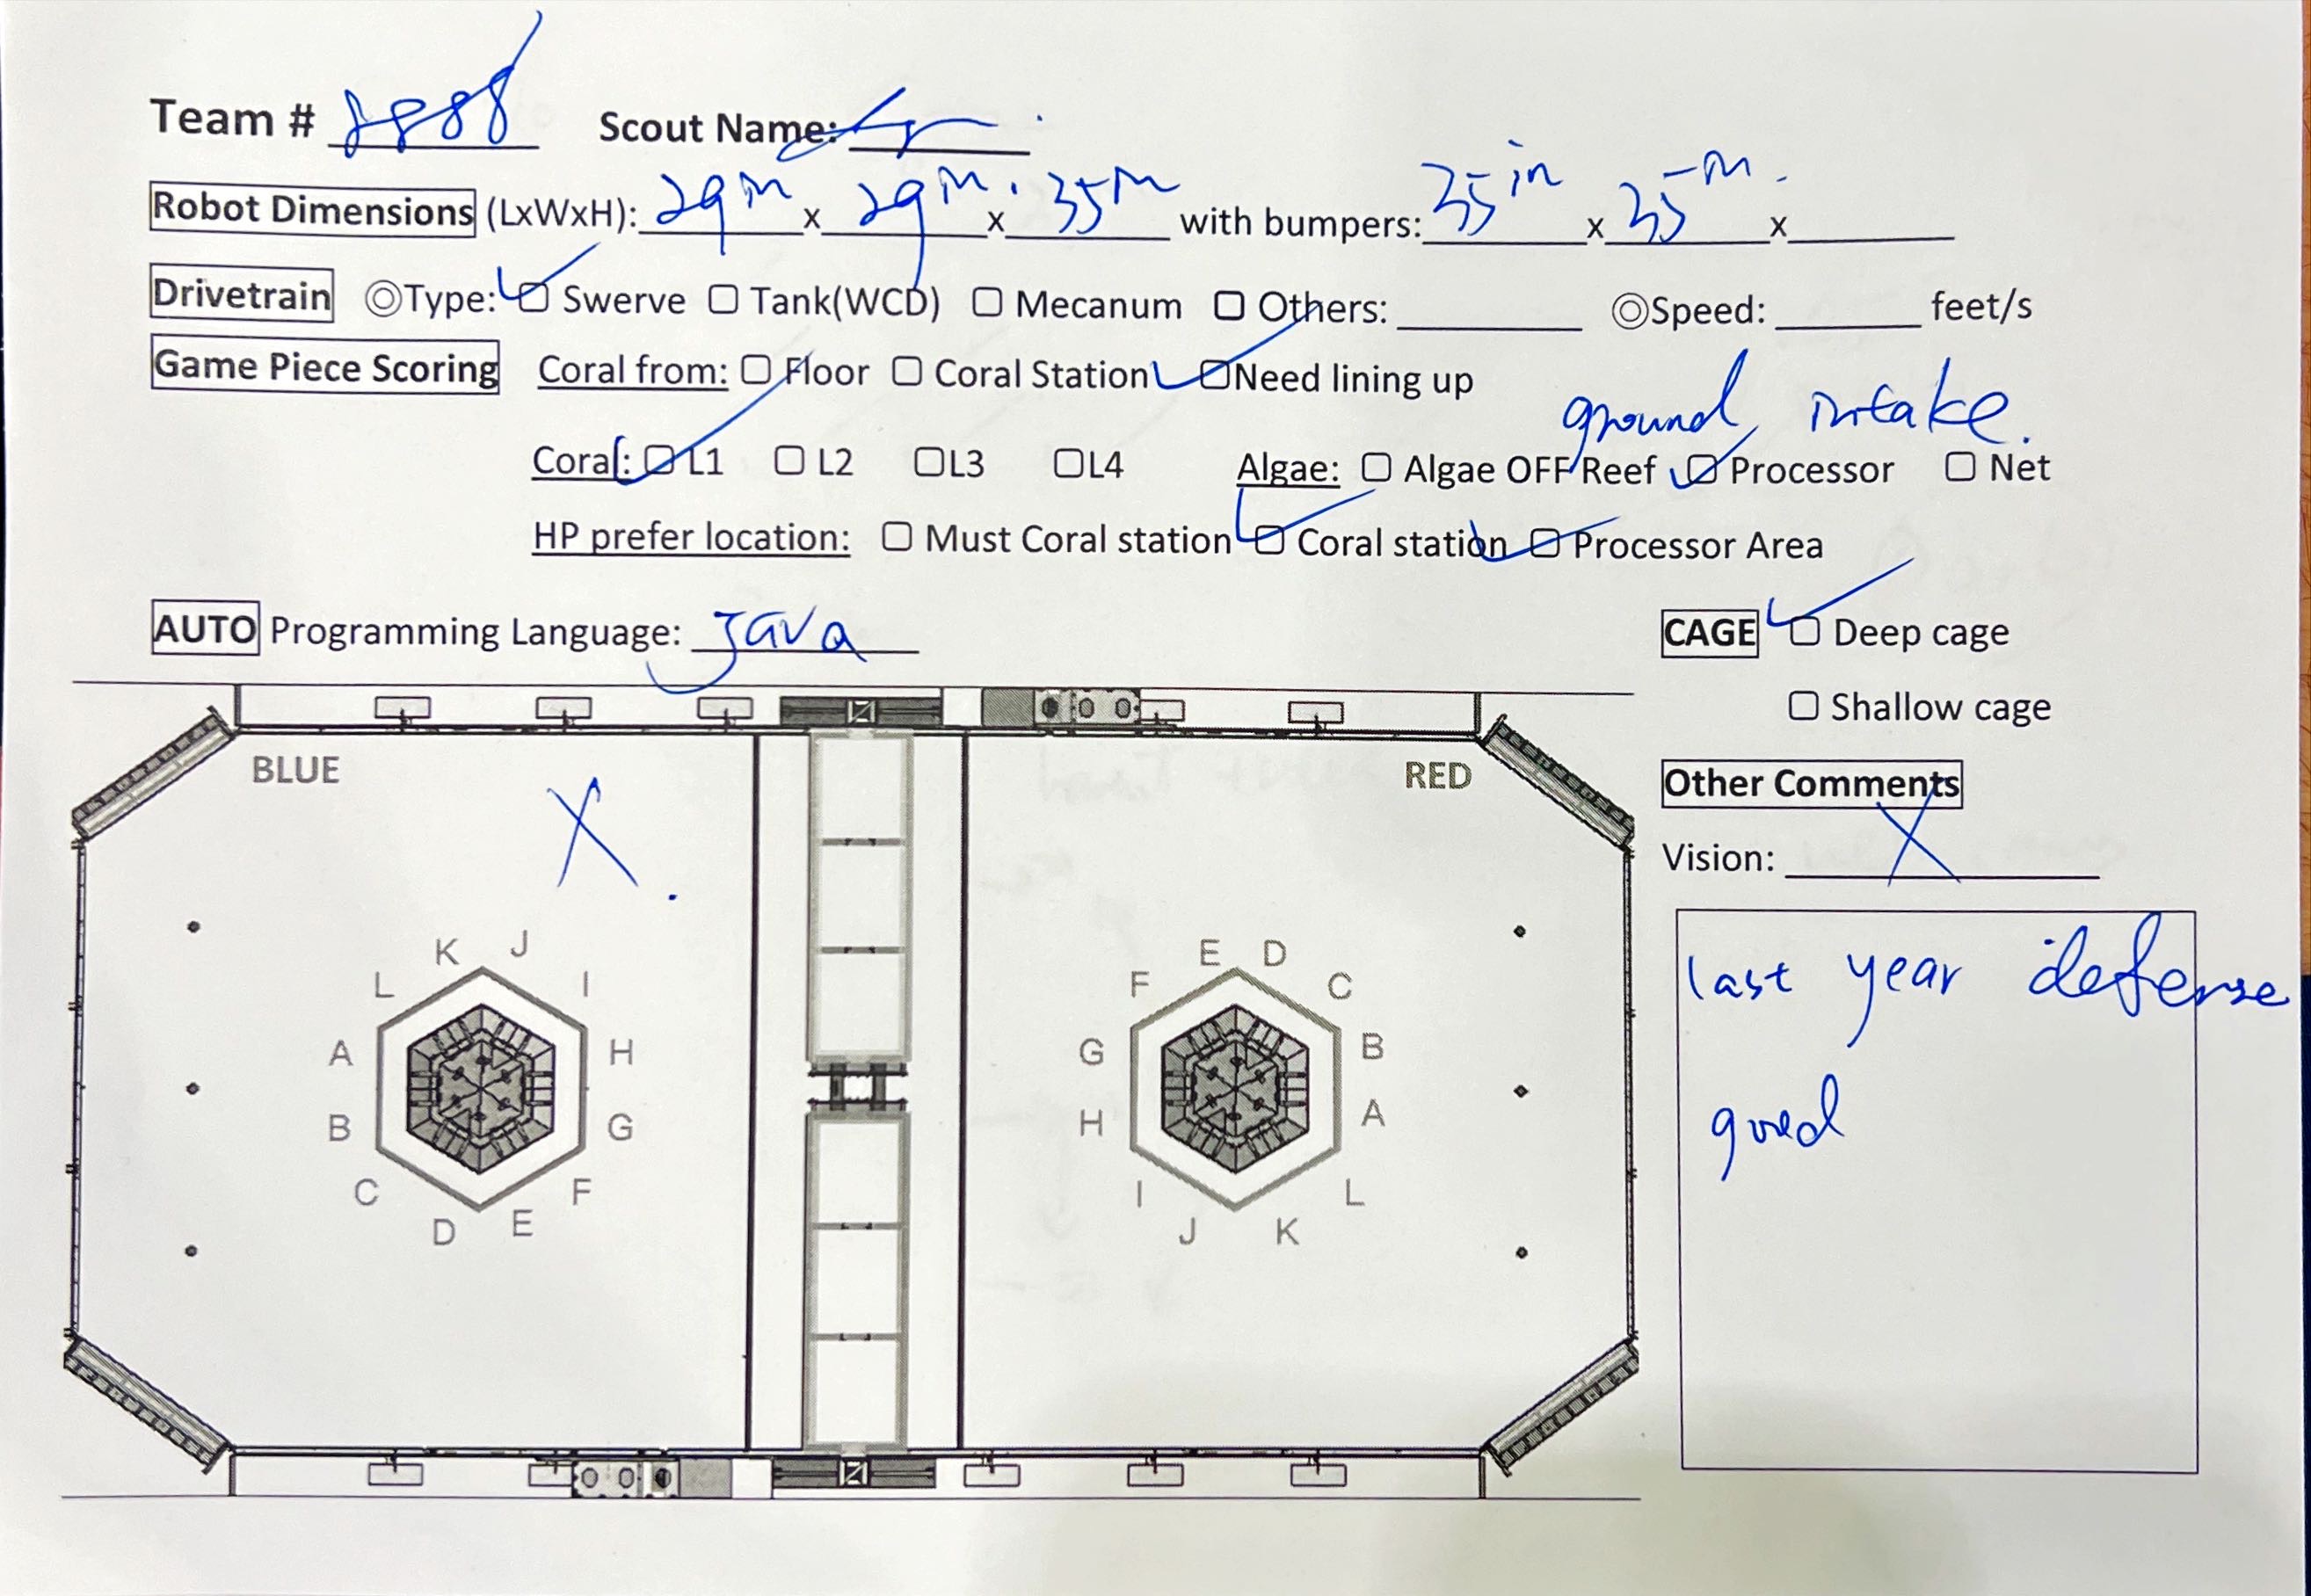 Team # 8888 Scout Name:
Robot Dimensions (LxWxH): 29in x 29in x 35in with bumpers: 35in x 35in x
Drivetrain ◎Type: ☑ Swerve ☐ Tank(WCD) ☐ Mecanum ☐ Others: ◎Speed: feet/s
Game Piece Scoring Coral from: ☐ Floor ☐ Coral Station ☑Need lining up
ground intake.
Coral: ☑ L1 ☐ L2 ☐L3 ☐L4 Algae: ☐ Algae OFF Reef ☑ Processor ☐ Net
HP prefer location: ☐ Must Coral station ☑ Coral station ☑ Processor Area
AUTO Programming Language: Java
CAGE ☑ Deep cage
☐ Shallow cage
BLUE
X.
RED
Other Comments
Vision: X
last year defense
good
K J
L I
A H
B G
C F
D E
E D
F C
G B
H A
I L
J K